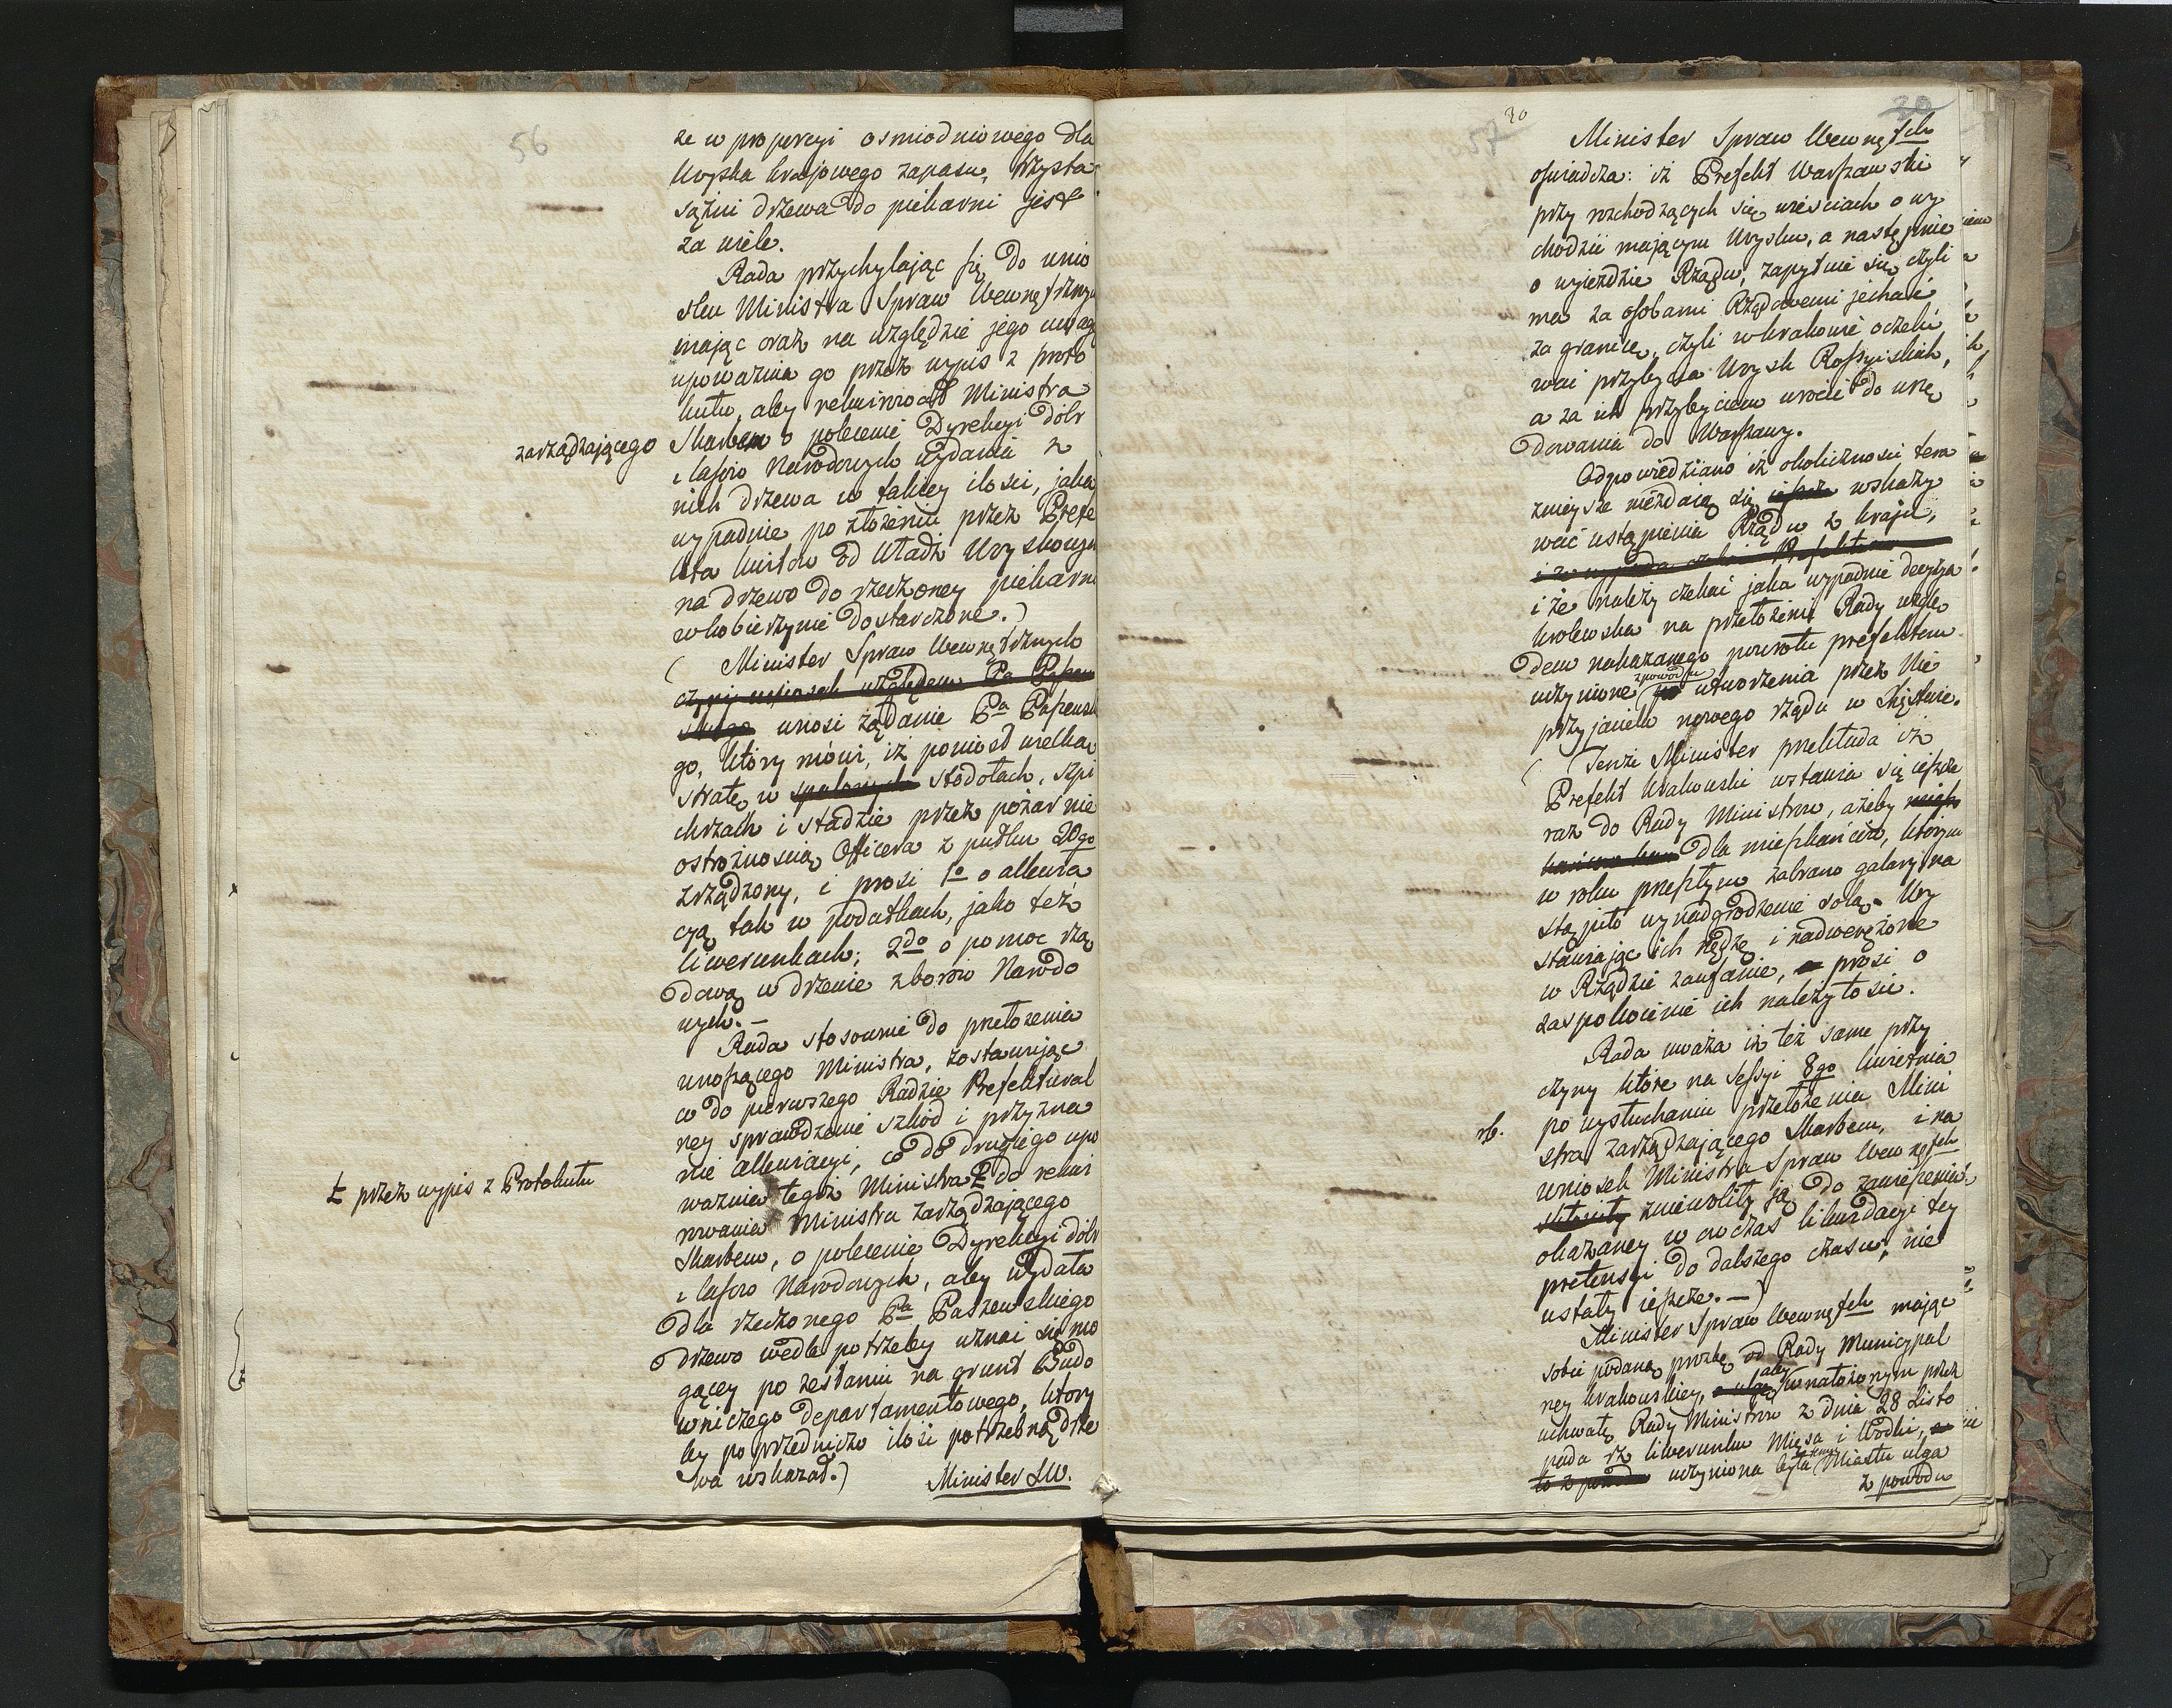 56
że w propercyi osmiodniowego dla
Woyska krajowego zapasu, trzysta
sążni drzewa do piekarni jest
za wiele.
Rada przychylając się do wnio
sku Ministra Spraw Wewnętrznych
mając oraz na względzie jego uwagę
upoważnia go przez wypis z proto
kułu, aby rekwirował Ministra
zarządzającego Skarbem o polecenie Dyrekcyi dóbr
i lasów Narodowych wydania z
nich drzewa w takiey ilosci, jaka
wypadnie po złożeniu przez Prefe
kta kwitów od Władz Woyskowych
na drzewo do rzeczoney piekarni
w Kobierzynie dostarczone.)
( Minister Spraw Wewnętrznych
czyni wniosek względem Pa Paszew
skiego wnosi żądanie Pa Paszewskie
go, który mówi, iż poniosł wielką
stratę w spalonych stodołach, szpi
chrzach i stadzie przez pożar nie
ostrożnoscią Officera z pułku 20go
zrządzony, i prosi 1o o allewia
cyą tak w podatkach, jako też
liwerunkach; 2do o pomoc rzą
dową w drzewie z borów Narodo
wych. —
Rada stosownie do przełożenia
wnoszącego Ministra, zostawując
co do pierwszego Radzie Prefektural
ney sprawdzenie szkód i przyzna
nie allewiacyi, co do drugiego upo
ważnia tegoż Ministra Ł do rekwi
Ł przez wypis z Protokułu
rowania Ministra zarządzającego
Skarbem, o polecenie Dyrekcyi dóbr
i lasów Narodowych, aby wydała
dla rzeczonego Pa Paszewskiego
drzewo wedle potrzeby uznać się mo
gącey po zesłaniu na grunt Budo
wniczego departamentowego, który
by poprzedniczo ilość potrzebną drze
wa wskazał.)
Minister SW.
57
30
30
Minister Spraw Wewnętch
oświadcza: iż Prefekt Warszawski
przy rozchodzących się wieściach o wy
chodzić mającym Woysku, a następnie
o wyjezdzie Rządu, zapytuie się czyli
ma za osobami Rządowemi jechać
za granicę, czyli w Krakowie oczeki
wać przybycia Woysk Rossyiskich,
a za ich przybyciem wrócić do urzę
dowania do Warszawy.
Odpowiedziano iż okoliczności tera
znieysze niezdaią się ieszcze wskazy
wać ustąpienia Rządu z kraju,
i że wypada Prefektowi
i że należy czekać jaka wypadnie decyzya
krolewska na przełożenie Rady wzglę
dem nakazanego powrotu prefektom
uczynione z powodu utworzenia przez Nie
przyjaciela nowego rządu w Xięstwie.
( Tenże Minister przekłada iż
Prefekt Krakowski wstawia się ieszcze
raz do Rady Ministrów, ażeby
dla mieszkańców, którym
w roku przeszłym zabrano galary na
stąpiło wynadgrodzenie solą. Wy
stawiając ich nędzę i nadwerężone
w Rządzie zaufanie, prosi o
zaspokoienie ich należytości.
Rada uważa iż też same przy
czyny które na sessyi 8go Kwietnia
po wysłuchaniu przełożenia Mini
stra zarządzającego Skarbem, i na
wniosek Ministra Spraw Wewnętch
skłoniły zniewoliły ją do zawieszenia
okazaney w ów czas likwidacyi tey
pretensyi do dalszego czasu, nie
ustały ieszcze. —)
Minister Spraw Wewnętch mając
sobie podaną prożbę od Rady Municypal
ney Krakowskiey, aby w nałożonym przez
uchwałę Rady Ministrów z dnia 28 Listo
pada rz. liwerunku Mięsa i Wódki,
uczyniona była temuż Miastu ulga
z powodu